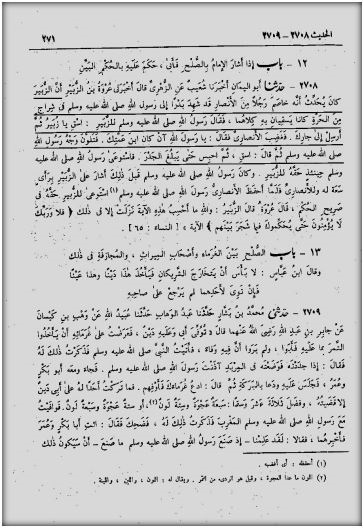 الحديث ٢٧٠٨ - ٢٧٠٩ ٢٧١
١٢ - باب إذا أشار الإمام بالصلح فأبى ، حكم عليه بالحكم البين
٢٧٠٨ - حدثنا أبو اليمان أخبرنا شعيب عن الزهرى قال أخبرنى عروة بن الزبير أن الزبير
كان يحدث أنه خاصم رجلا من الأنصار قد شهد بدرا إلى رسول الله صلى الله عليه وسلم فى شراج
من الحرة كانا يسقيان به كلاهما ، فقال رسول الله صلى الله عليه وسلم للزبير : اسق يا زبير ثم
أرسل إلى جارك . فغضب الأنصارى فقال : يا رسول الله آن كان ابن عمتك ، فتلون وجه رسول الله
صلى الله عليه وسلم ثم قال : اسق ، ثم احبس حتى يبلغ الجدر . فاستوعى رسول الله صلى الله عليه
وسلم حينئذ حقه للزبير . وكان رسول الله صلى الله عليه وسلم قبل ذلك أشار على الزبير برأى
سعة له وللأنصارى فلما أحفظ الأنصارى رسول الله صلى الله عليه وسلم (١) استوعى للزبير حقه فى
صريح الحكم . قال عروة قال الزبير : والله ما أحسب هذه الآية نزلت إلا فى ذلك ﴿ فلا وربك
لا يؤمنون حتى يحكموك فيما شجر بينهم ﴾ الآية » [ النساء : ٦٥ ] .
١٣ - باب الصلح بين الغرماء وأصحاب الميراث ، والمجازفة فى ذلك
وقال ابن عباس : لا بأس أن يتخارج الشريكان فيأخذ هذا دينا وهذا عينا
فإن توى لأحدهما لم يرجع على صاحبه
٢٧٠٩ - حدثنى محمد بن بشار حدثنا عبد الوهاب حدثنا عبيد الله عن وهب بن كيسان
عن جابر بن عبد الله رضى الله عنهما قال « توفى أبى وعليه دين ، فعرضت على غرمائه أن يأخذوا
التمر بما عليه فأبوا ، ولم يروا أن فيه وفاء ، فأتيت النبى صلى الله عليه وسلم فذكرت ذلك له
فقال : إذا جددته فوضعته فى المربد آذنت رسول الله صلى الله عليه وسلم . فجاء ومعه أبو بكر
وعمر ، فجلس عليه ودعا بالبركة ثم قال : ادع غرماءك فأوفهم . فما تركت أحدا له على أبى دين
إلا قضيته ، وفضل ثلاثة عشر وسقا: سبعة عجوة وستة لون(٢)، أو ستة عجوة وسبعة لون. فوافيت
مع رسول الله صلى الله عليه وسلم المغرب فذكرت ذلك له ، فضحك فقال : ائت أبا بكر وعمر
فأخبرهما ، فقالا : لقد علمنا - إذ صنع رسول الله صلى الله عليه وسلم ما صنع - أن سيكون ذلك
(١) أحفظه : أى أغضبه .
(٢) اللون ما عدا العجوة ، وقيل هو الردىء من التمر . ويقال له : اللون ، واللين ، واللينة .